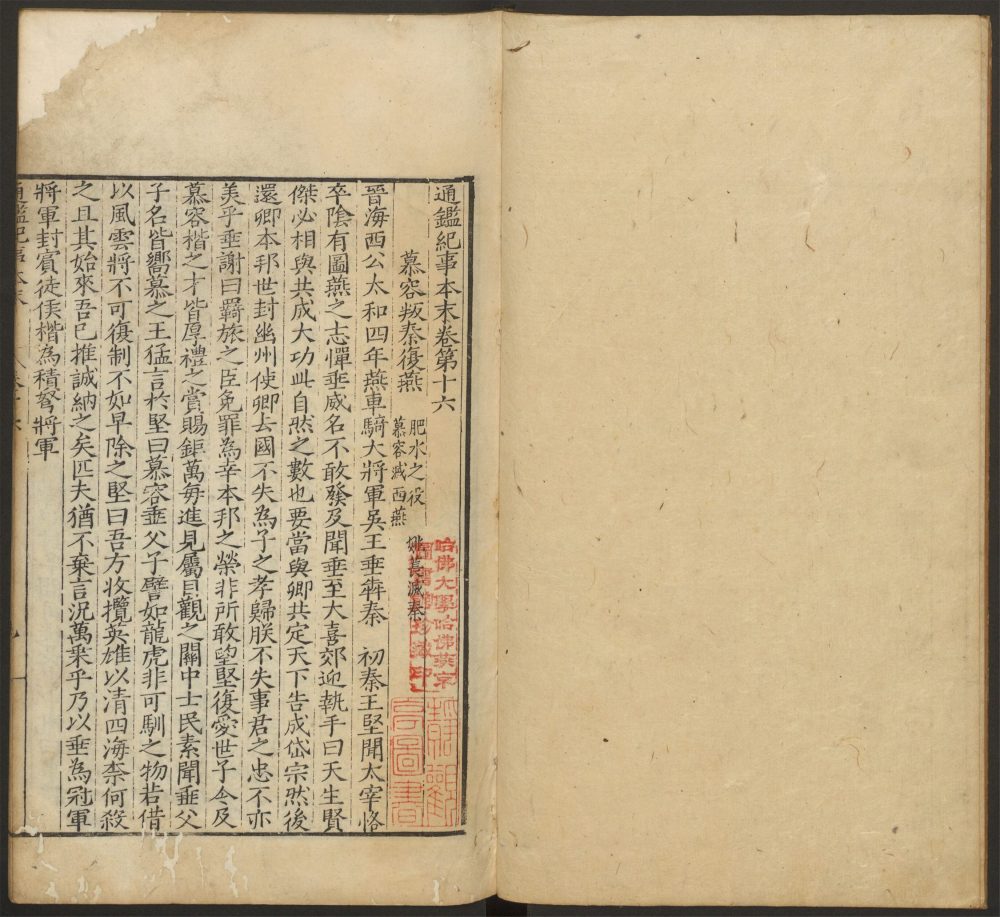 通鑑紀事本末卷第十六
慕容叛秦復燕
肥水之役
慕容滅西燕
姚萇滅秦
晉海西公太和四年燕車騎大將軍吳王垂奔秦 初秦王堅聞太宰恪
卒陰有圖燕之志憚垂威名不敢發及聞垂至大喜郊迎執手曰天生賢
傑必相與共成大功此自然之數也要當與卿共定天下告成岱宗然後
還卿本邦世封幽州使卿去國不失為子之孝歸朕不失事君之忠不亦
美乎垂謝曰羇旅之臣免罪為幸本邦之榮非所敢望堅復愛世子令及
慕容楷之才皆厚禮之賞賜鉅萬每進見屬目觀之關中士民素聞垂父
子名皆嚮慕之王猛言於堅曰慕容垂父子譬如龍虎非可馴之物若借
以風雲將不可復制不如早除之堅曰吾方收攬英雄以清四海柰何殺
之且其始來吾已推誠納之矣匹夫猶不棄言況萬乘乎乃以垂為冠軍
將軍封賓徒侯楷為積弩將軍
哈佛大學哈佛燕京
圖書館珍藏印
通鑑紀事本末